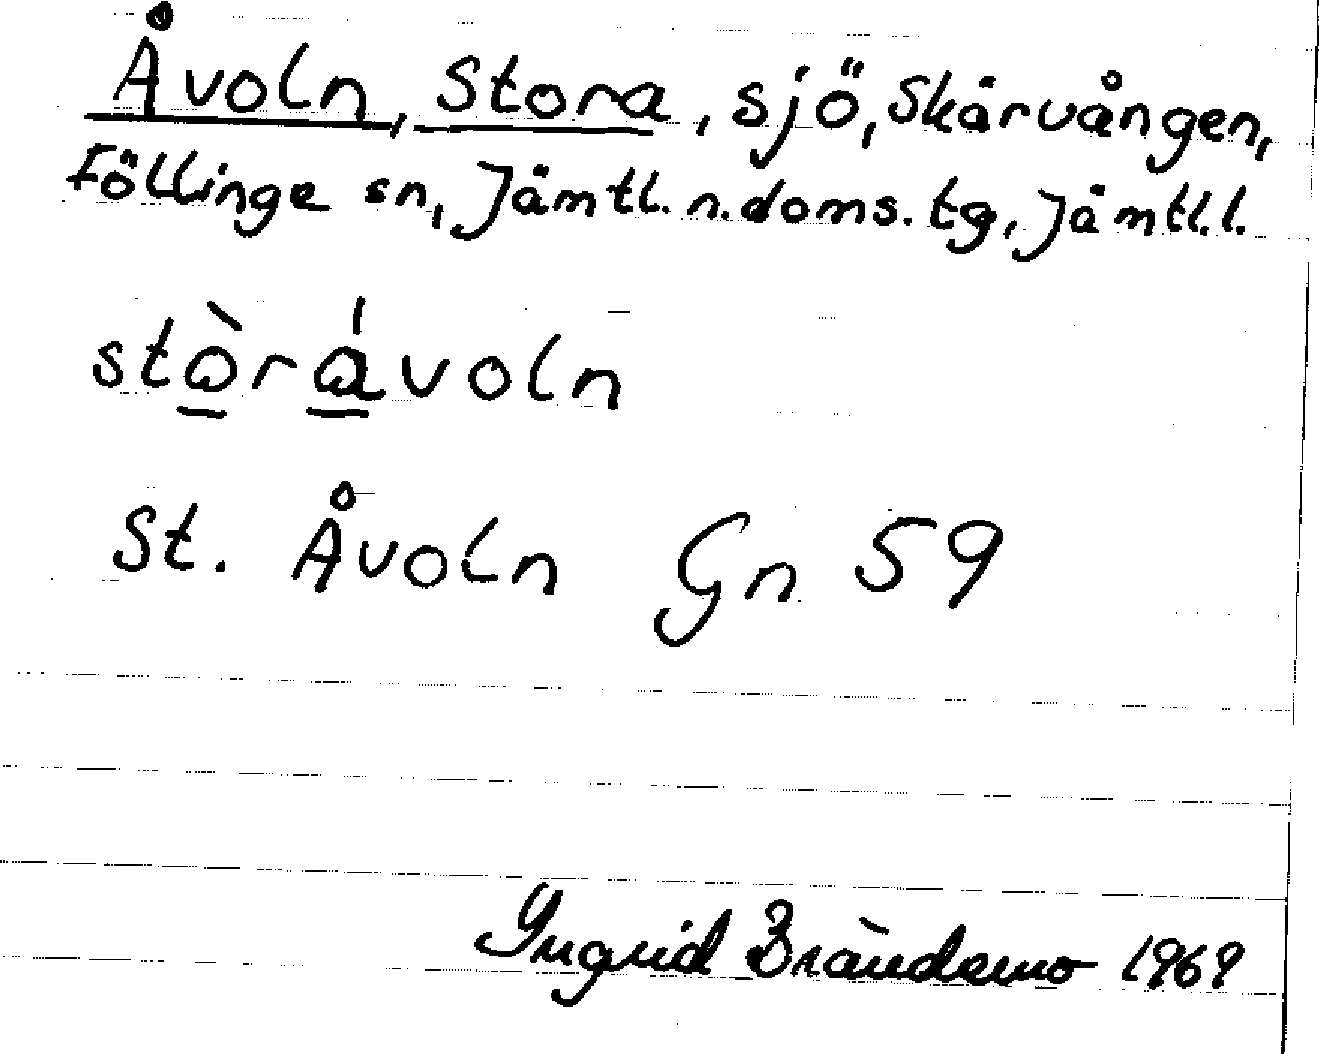 Åvoln, Stora, sjö, Skärvången,
Föllinge sn, Jämtl. n. doms. tg, Jämtl. l.
stò̠rá̠voln
St. Åvoln Gn 59
Ingrid Brändemo 1969